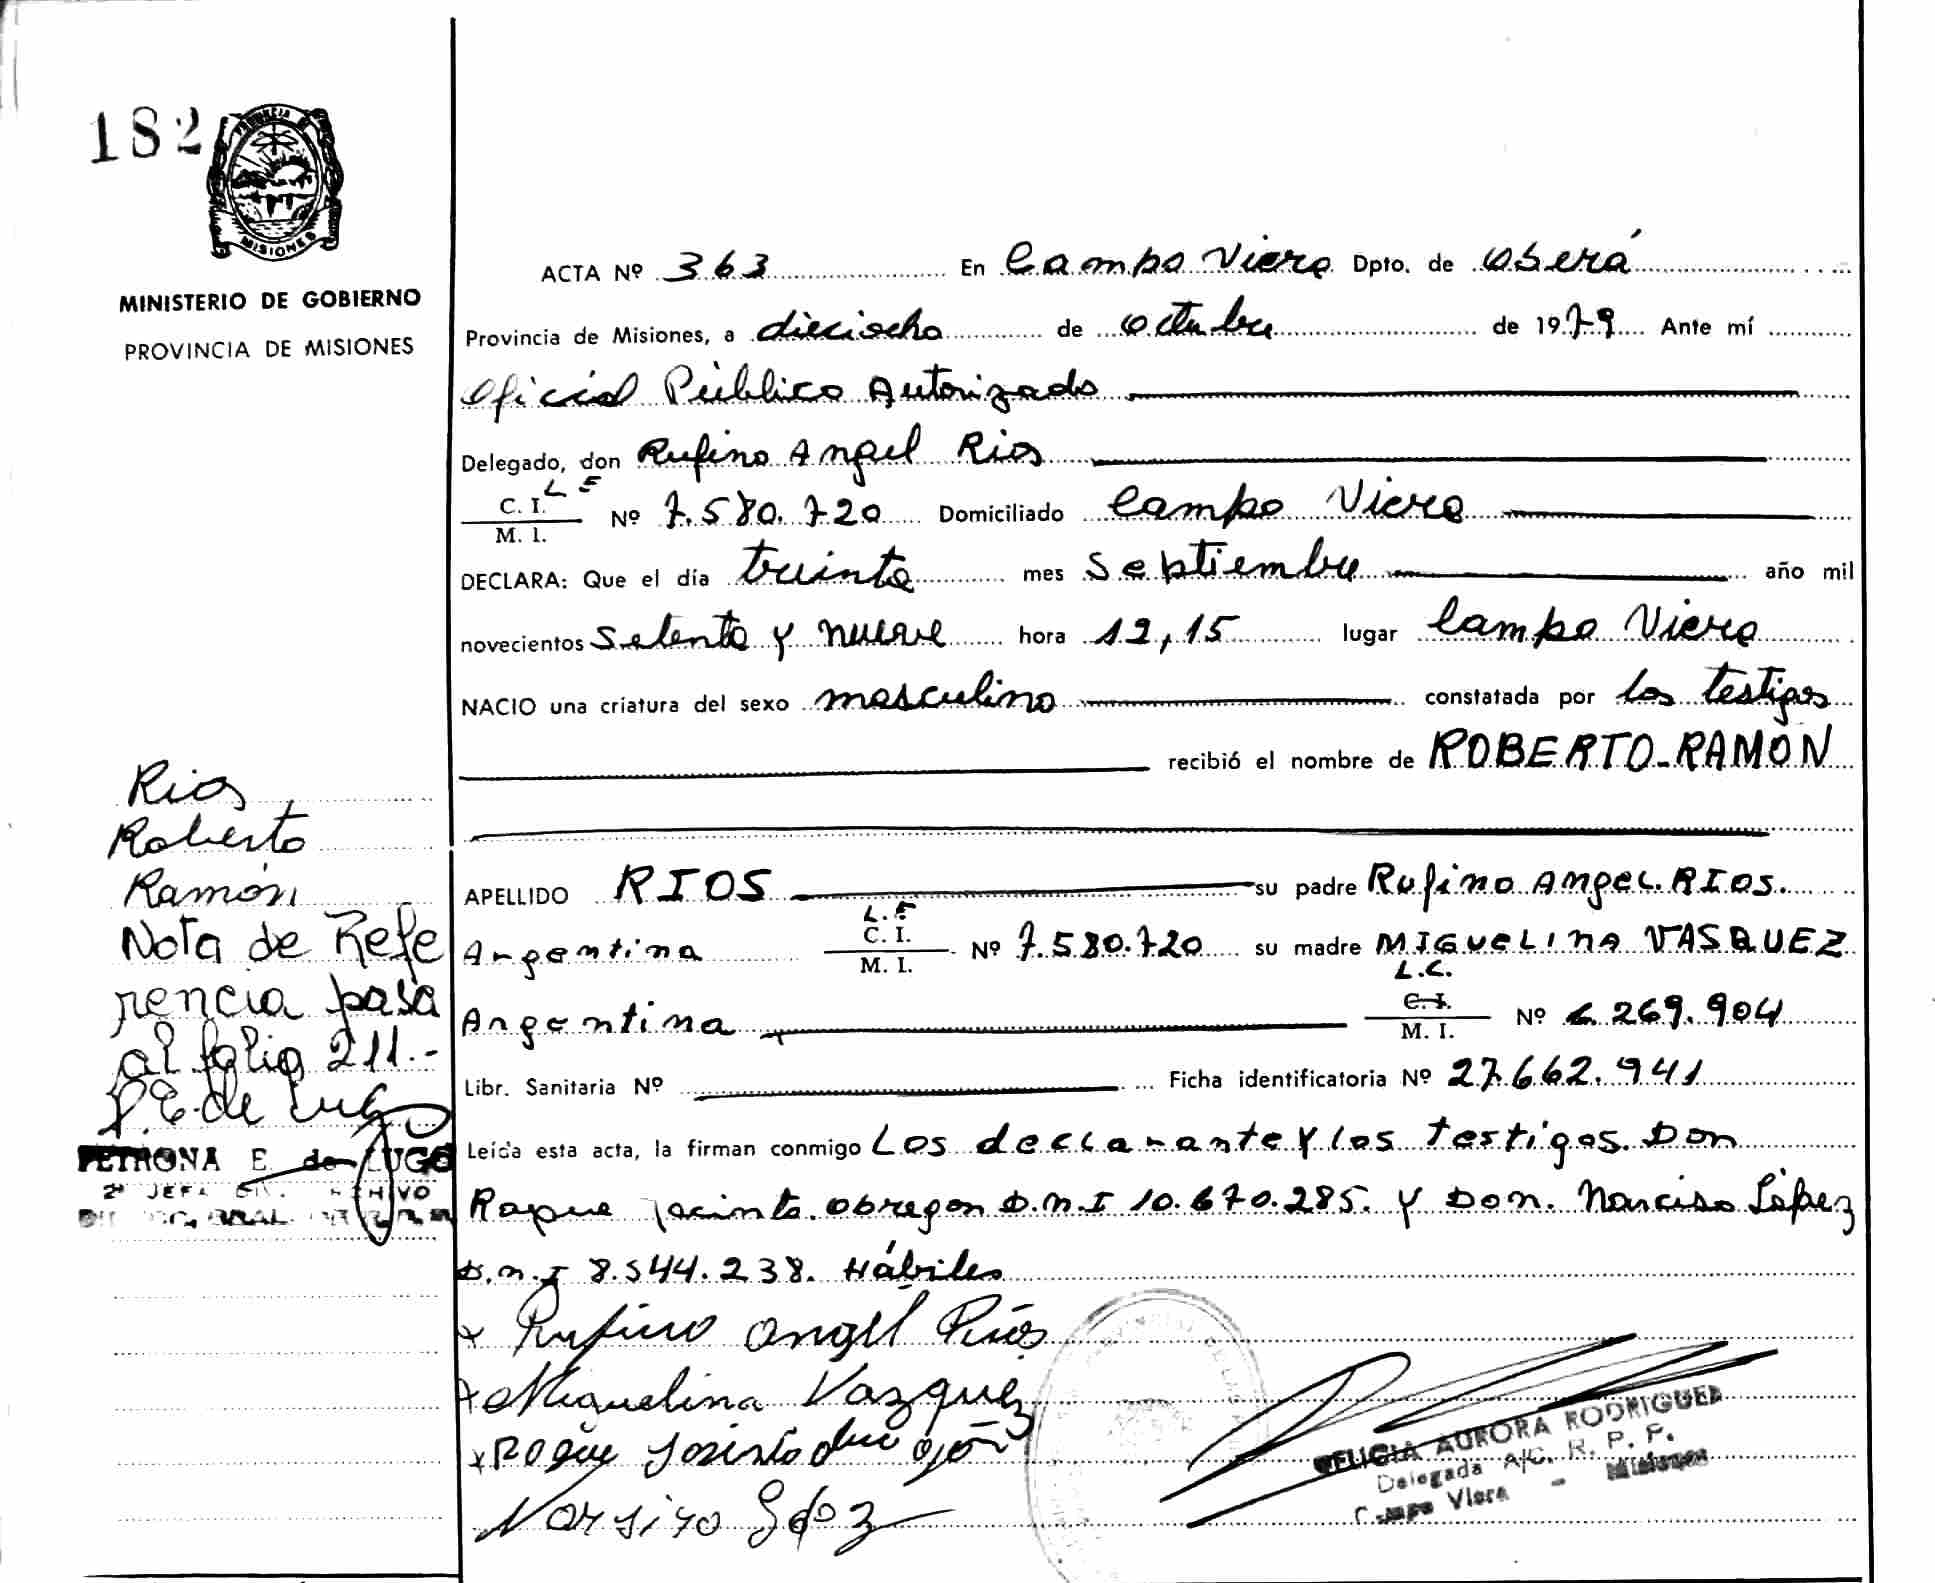 182
PROVINCIA DE
MISIONES
MINISTERIO DE GOBIERNO
PROVINCIA DE MISIONES
ACTA Nº 363 En Campo Viera Dpto. de Oberá
Provincia de Misiones, a dieciocho de Octubre de 1979 Ante mí
Oficial Público Autorizado
Delegado, don Rufino Angel Rios
L E
C. I.
M. I.
Nº 7.580.720 Domiciliado Campo Viera
DECLARA: Que el día treinta mes Septiembre año mil
novecientos Setenta y nueve hora 12,15 lugar Campo Viera
NACIO una criatura del sexo masculino constatada por los testigos
recibió el nombre de ROBERTO-RAMÓN
APELLIDO RIOS su padre Rufino Angel RIOS.
Argentina L.E C. I. M. I. Nº 7.580.720 su madre MIGUELINA VASQUEZ
Argentina L.C. C. I. M. I. Nº 6.269.904
Libr. Sanitaria Nº Ficha identificatoria Nº 27.662.941
Leída esta acta, la firman conmigo Los declarante y los testigos. Don
Roque Jacinto Obregon D.N.I 10.670.285. y Don. Narciso López
D.N.I 8.544.238. Hábiles
Rufino Angel Ríos
Miguelina Vazquez
Roque
Rios
Roberto
Ramón
Nota de Refe
rencia pasa
al folio 211.-
P.E. de Lugo
PETRONA E. de LUGO
2ª JEFA
FELICIA AURORA RODRIGUEZ
Delegada A/C. R. P. P.
Campo Viera - Misiones